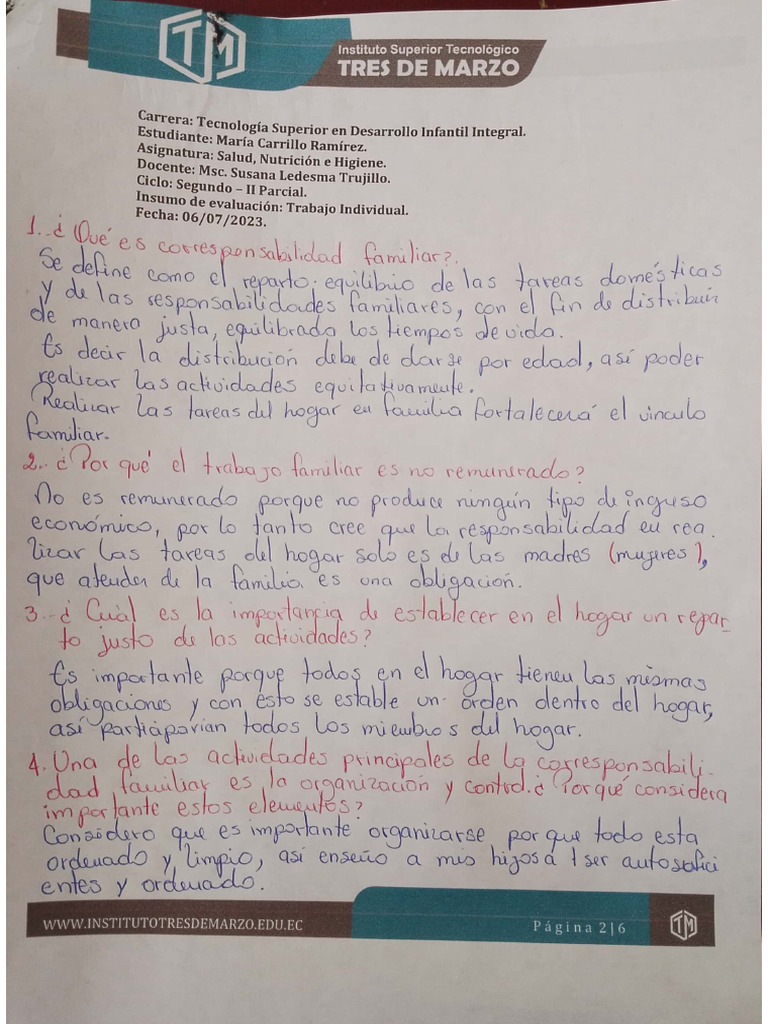 TM
Instituto Superior Tecnológico
TRES DE MARZO
Carrera: Tecnología Superior en Desarrollo Infantil Integral.
Estudiante: María Carrillo Ramírez.
Asignatura: Salud, Nutrición e Higiene.
Docente: Msc. Susana Ledesma Trujillo.
Ciclo: Segundo – II Parcial.
Insumo de evaluación: Trabajo Individual.
Fecha: 06/07/2023.
1.- ¿Qué es corresponsabilidad familiar?.
Se define como el reparto equilibrio de las tareas domésticas
y de las responsabilidades familiares, con el fin de distribuir
de manera justa, equilibrado los tiempos de vida.
Es decir la distribución debe de darse por edad, así poder
realizar las actividades equitativamente.
Realizar las tareas del hogar en familia fortalecerá el vinculo
familiar.
2.- ¿Por qué el trabajo familiar es no remunerado?
No es remunerado porque no produce ningún tipo de ingreso
económico, por lo tanto cree que la responsabilidad en rea
lizar las tareas del hogar solo es de las madres (mujeres),
que atender de la familia es una obligación.
3.- ¿Cuál es la importancia de establecer en el hogar un repar_
to justo de las actividades?
Es importante porque todos en el hogar tienen las mismas
obligaciones y con esto se estable un orden dentro del hogar,
así participarían todos los miembros del hogar.
4. Una de las actividades principales de la corresponsabili-
dad familiar es la organización y control. ¿Porqué considera
importante estos elementos?
Considero que es importante organizarse porque todo esta
ordenado y limpio, así enseño a mis hijos a ser autosufici
entes y ordenado.
WWW.INSTITUTOTRESDEMARZO.EDU.EC
Página 2|6
TM